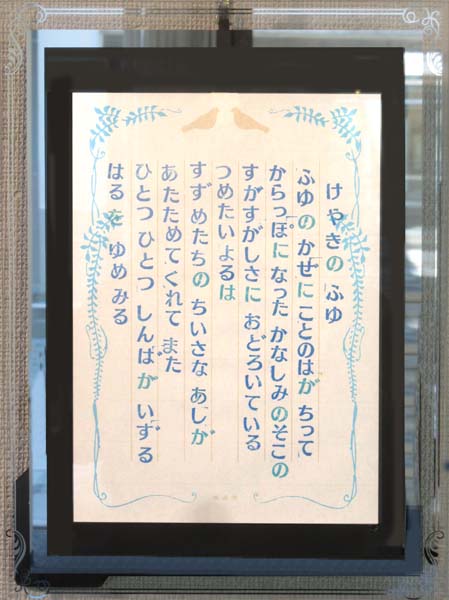 けやきの ふゆ
ふゆ の かぜに ことのはが ちって
からっぽに なった かなしみ のそこの
すがすがしさに おどろいている
つめたい よるは
すずめたち の ちいさな あしが
あたためてくれて また
ひとつ ひとつ しんばが いずる
はるを ゆめみる